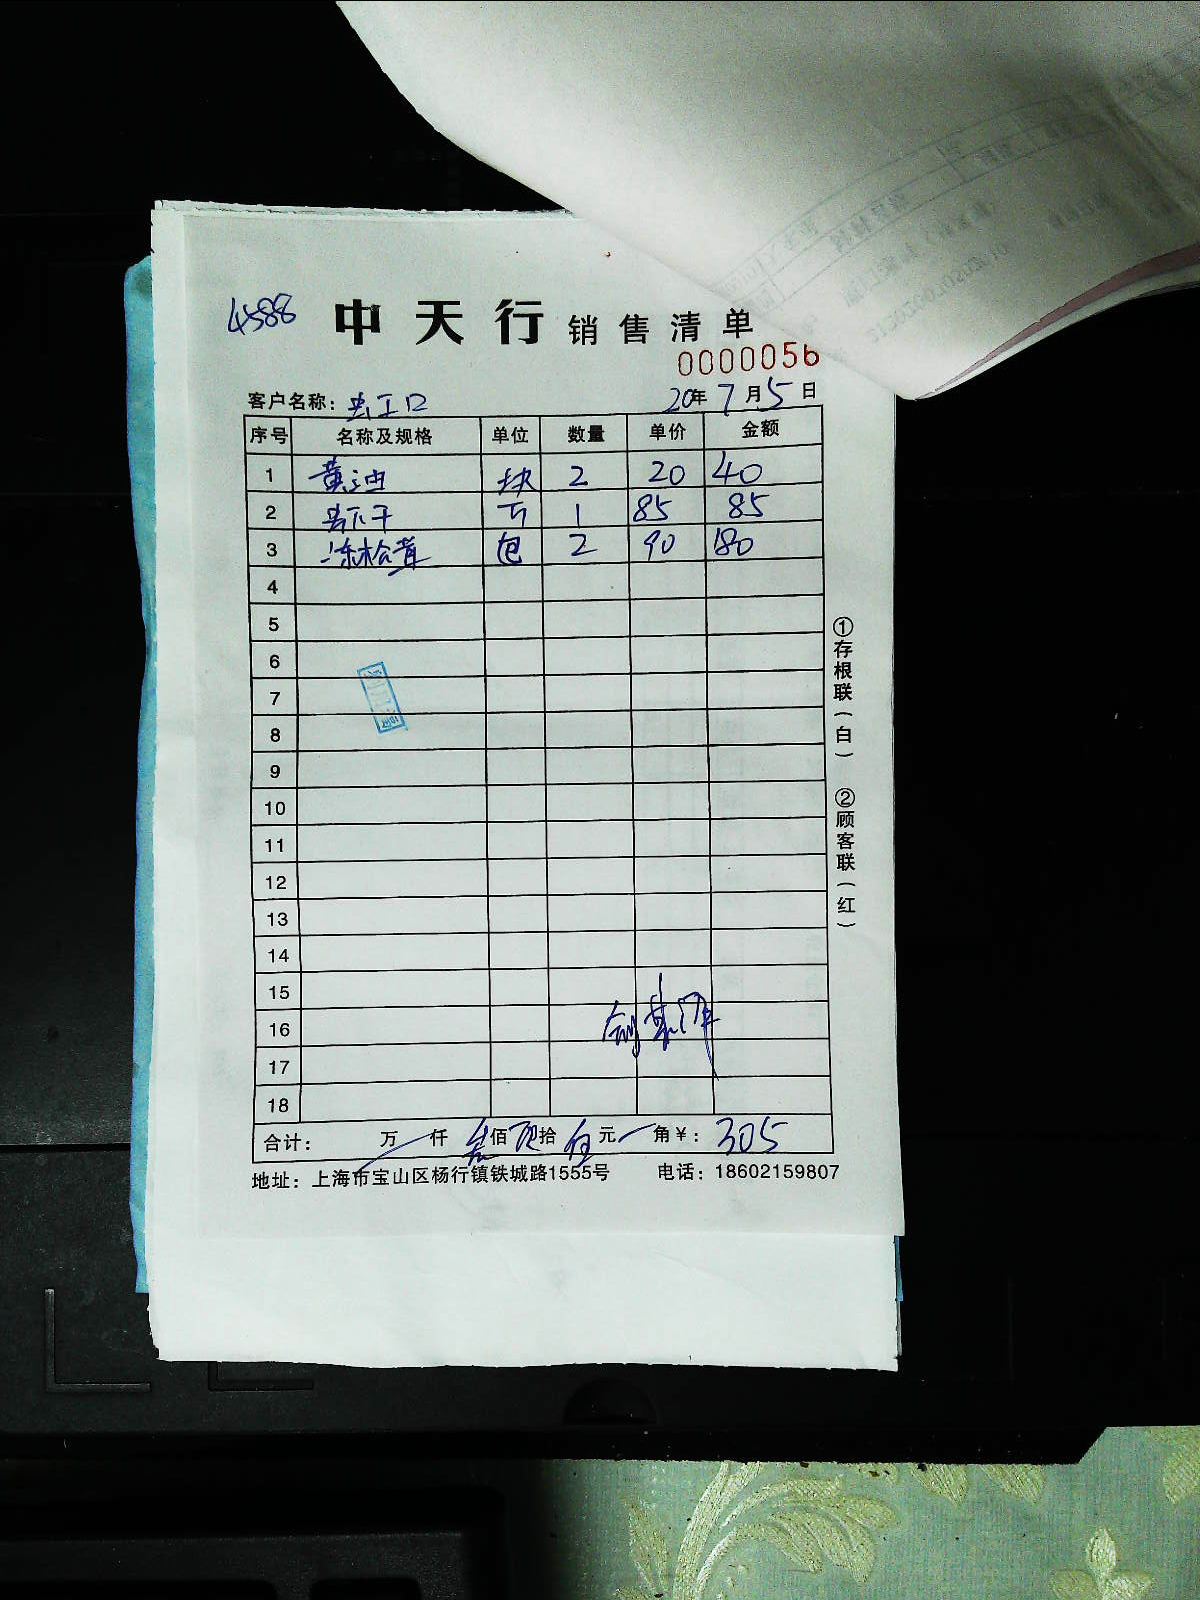 4588 中天行 销售清单
0000056
客户名称: 20年7月5日
序号 名称及规格 单位 数量 单价 金额
1 黄油 块 2 20 40
2 1 85 85
3 冻松茸 包 2 90 180
4
5
6
7
8
9
10
11
12
13
14
15
16
17
18
合计: 万 仟 叁佰 拾 伍元 角 ¥: 305
地址: 上海市宝山区杨行镇铁城路1555号 电话: 18602159807
①存根联(白) ②顾客联(红)